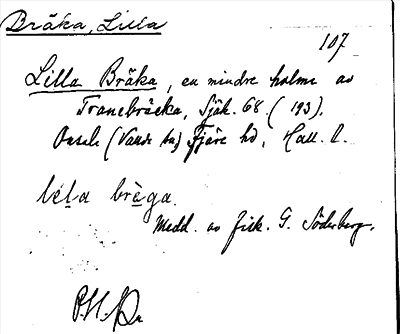 Bräka, Lilla
107
Lilla Bräka, en mindre holme av
Tranebräcka, Sjök. 68. (193).
Onsala Fjäre hd, Hall. l.
lẹla brẹga.
Medd. av fisk. G. Söderberg.